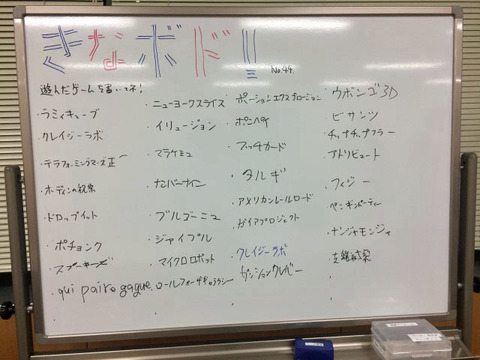 きなボドリ
No.44.
遊んだゲームを書いてネ!
・ラミィキューブ
・クレイジーラボ
・テラフォーミングマーズ 正一
・ホーディンの祝祭
・ドロップイット
・ポチョンク
・スプーキーズ
・qui paire gagne
・ニューヨークスライス
・イリュージョン
・マラケシュ
・ナンバーナイン
・ブルゴーニュ
・ジャイプル
・マイクロロボット
・ロールフォーザギャラクシー
・ポーションエクスプロージョン
・ポンペイ
・タルギ
・アメリカンレールロード
・ガイアプロジェクト
・クレイジーラボ
・ウボンゴ3D
・ビザンツ
・チャオチャオ
・アトリビュート
・フィジー
・ペンギンパーティー
・ナンジャモンジャ